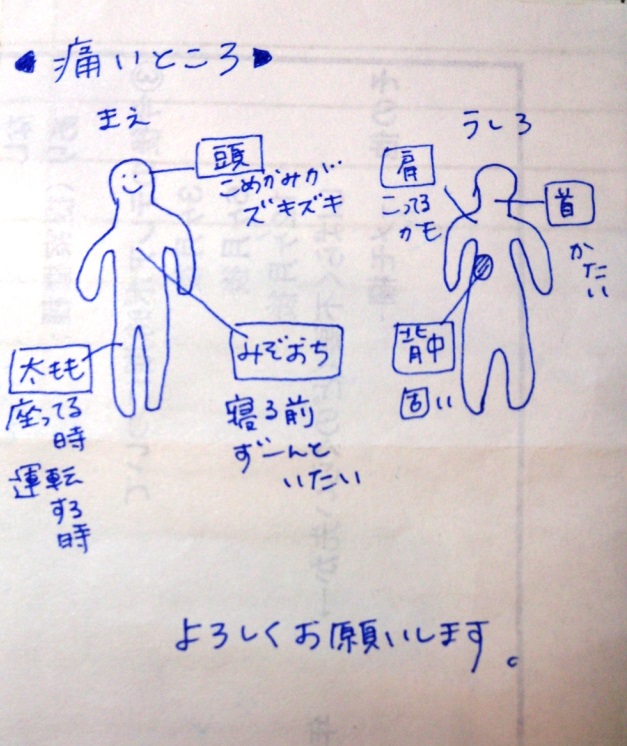 痛いところ
まえ
頭
こめかみが
ズキズキ
みぞおち
寝る前
ずーんと
いたい
太もも
座ってる
時
運転
する
時
うしろ
肩
こってる
かも
首
かたい
背中
固い
よろしくお願いします。